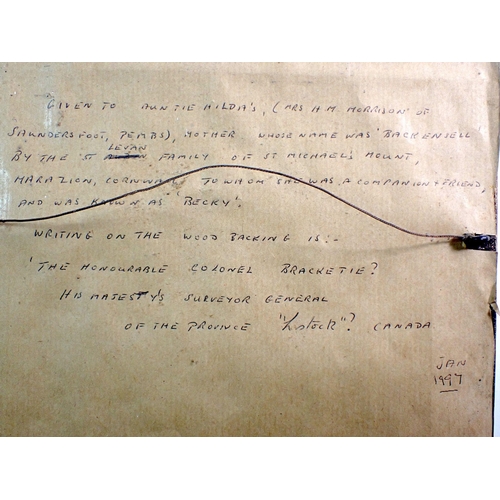 GIVEN TO AUNTIE HILDA'S, (MRS H.M. MORRISON OF
SAUNDERSFOOT, PEMBS), MOTHER WHOSE NAME WAS 'BACKENSELL
LEVAN
BY THE 'ST FAMILY OF ST MICHAEL'S MOUNT,
MARAZION, CORNWALL TO WHOM SHE WAS A COMPANION + FRIEND,
AND WAS KNOWN AS 'BECKY'.
WRITING ON THE WOOD BACKING IS:-
'THE HONOURABLE COLONEL BRACKETIE?
HIS MAJESTY'S SURVEYOR GENERAL
OF THE PROVINCE "        "? CANADA
JAN
1997